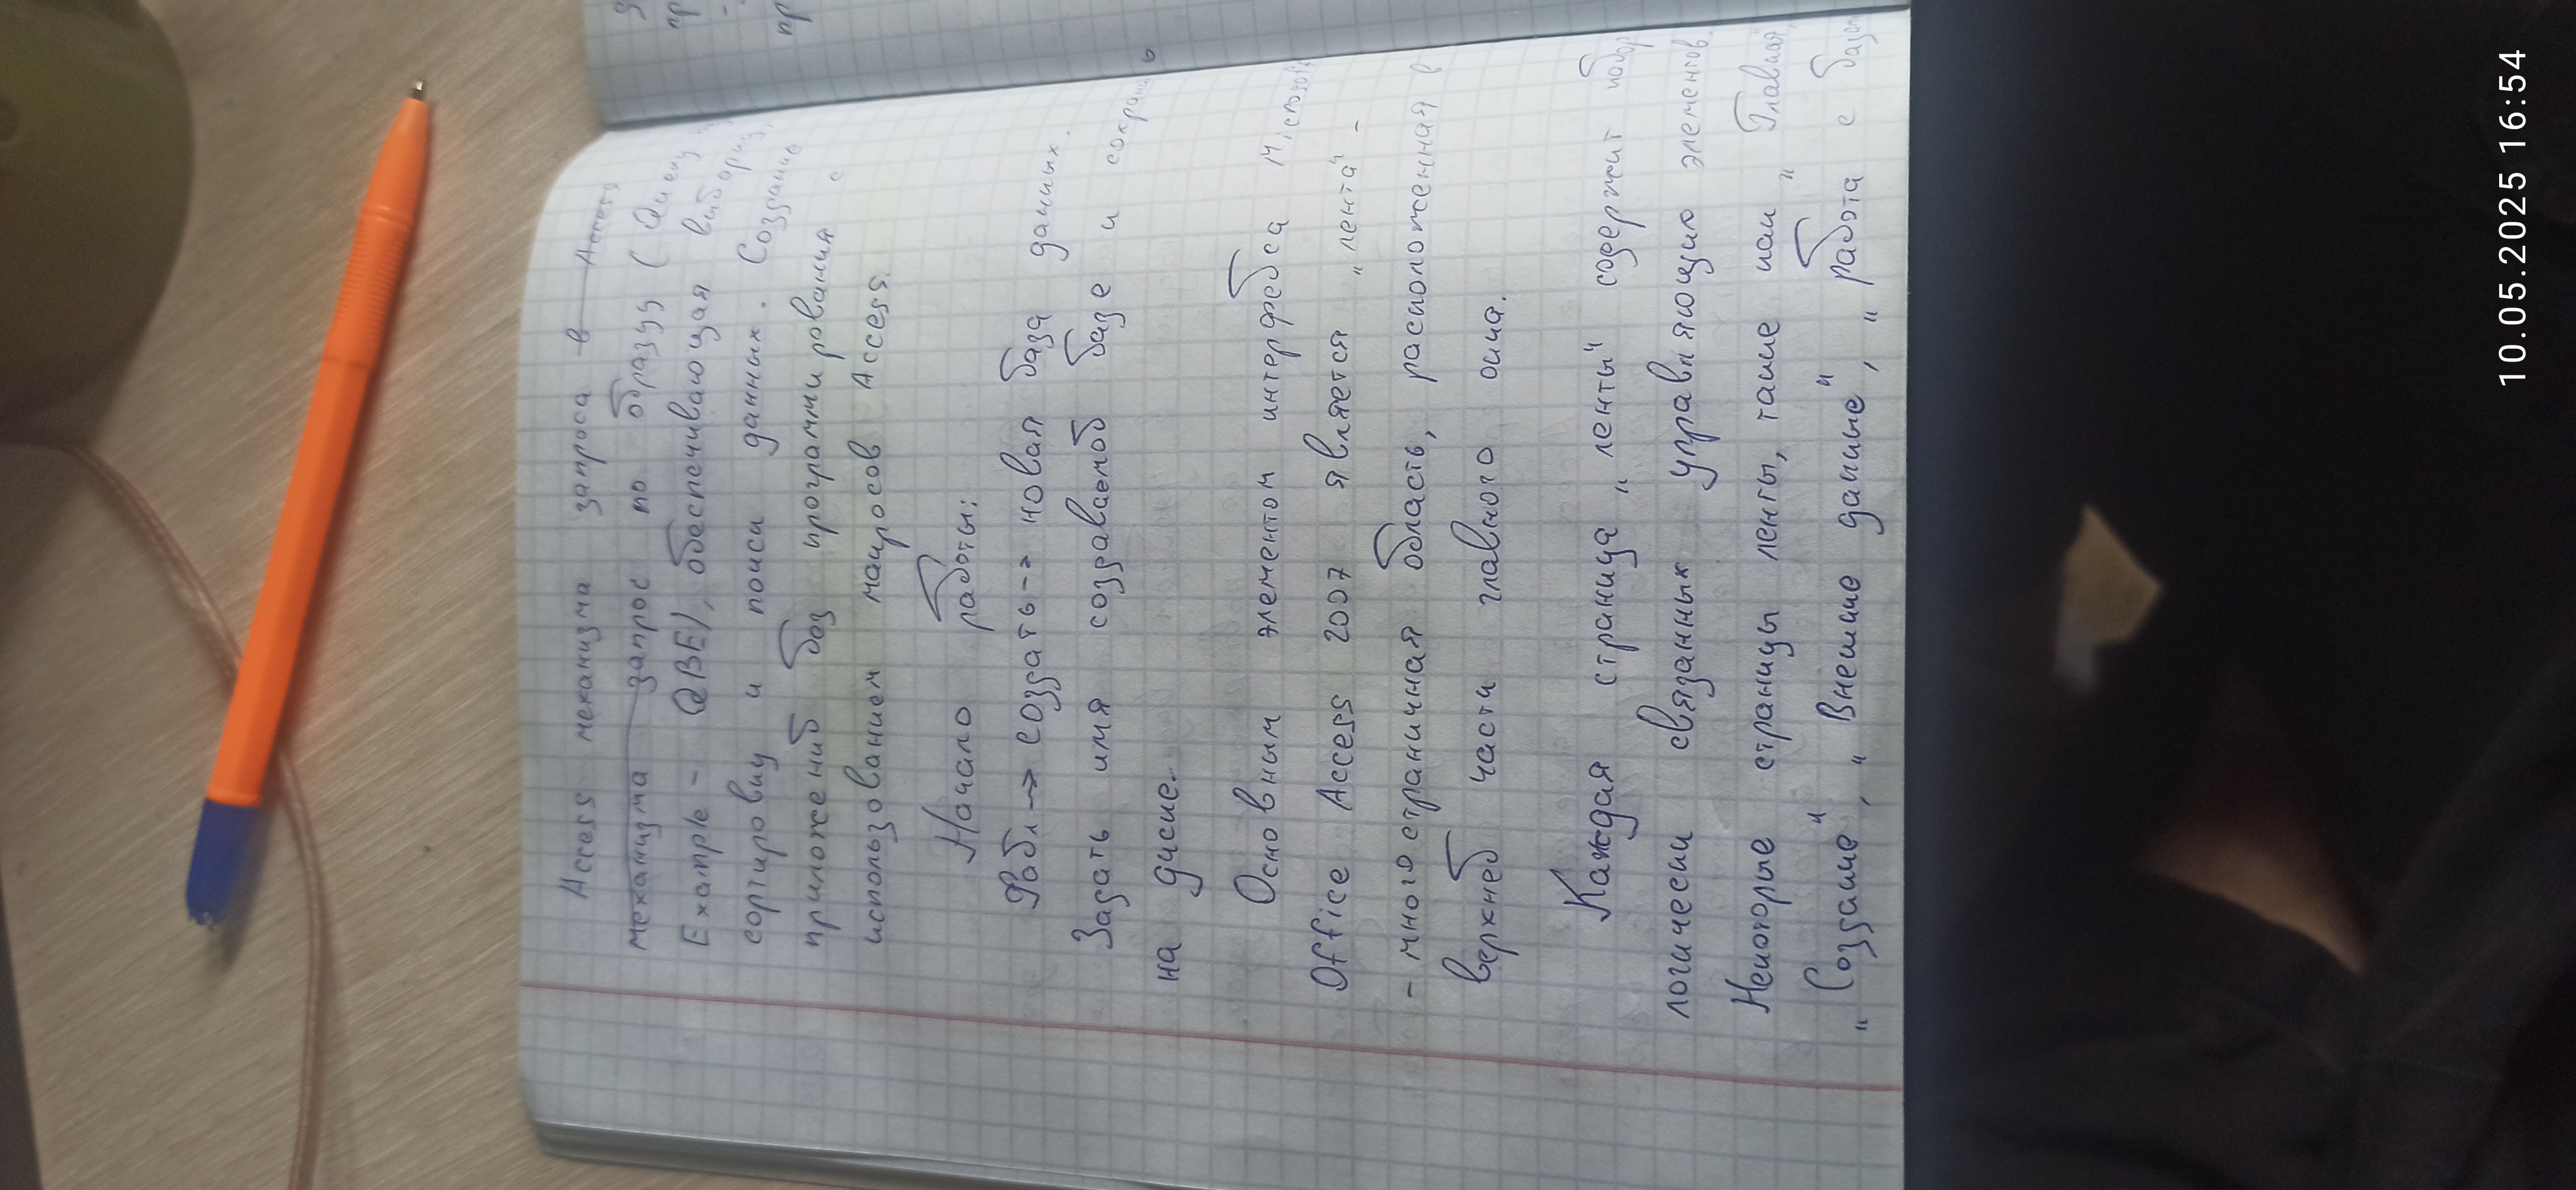 Access механизма запроса в Access
механизма запрос по образцу (Query
Example - QBE), обеспечивающая выборку,
сортировку и поиск данных. Создание
приложений без программирования с
использованием макросов Access.
Начало работы:
Файл → создать → новая база данных.
Задать имя создаваемой базе и сохрань
на диске.
Основным элементом интерфейса Microsoft
Office Access 2007 является „лента" -
- многостраничная область, расположенная в
верхней части главного окна.
Каждая страница „ленты" содержит набор
логически связанных управляющих элементов.
Некоторые страницы ленты, такие как „Главная",
„Создание", „Внешние данные", „работа с базы
10.05.2025 16:54